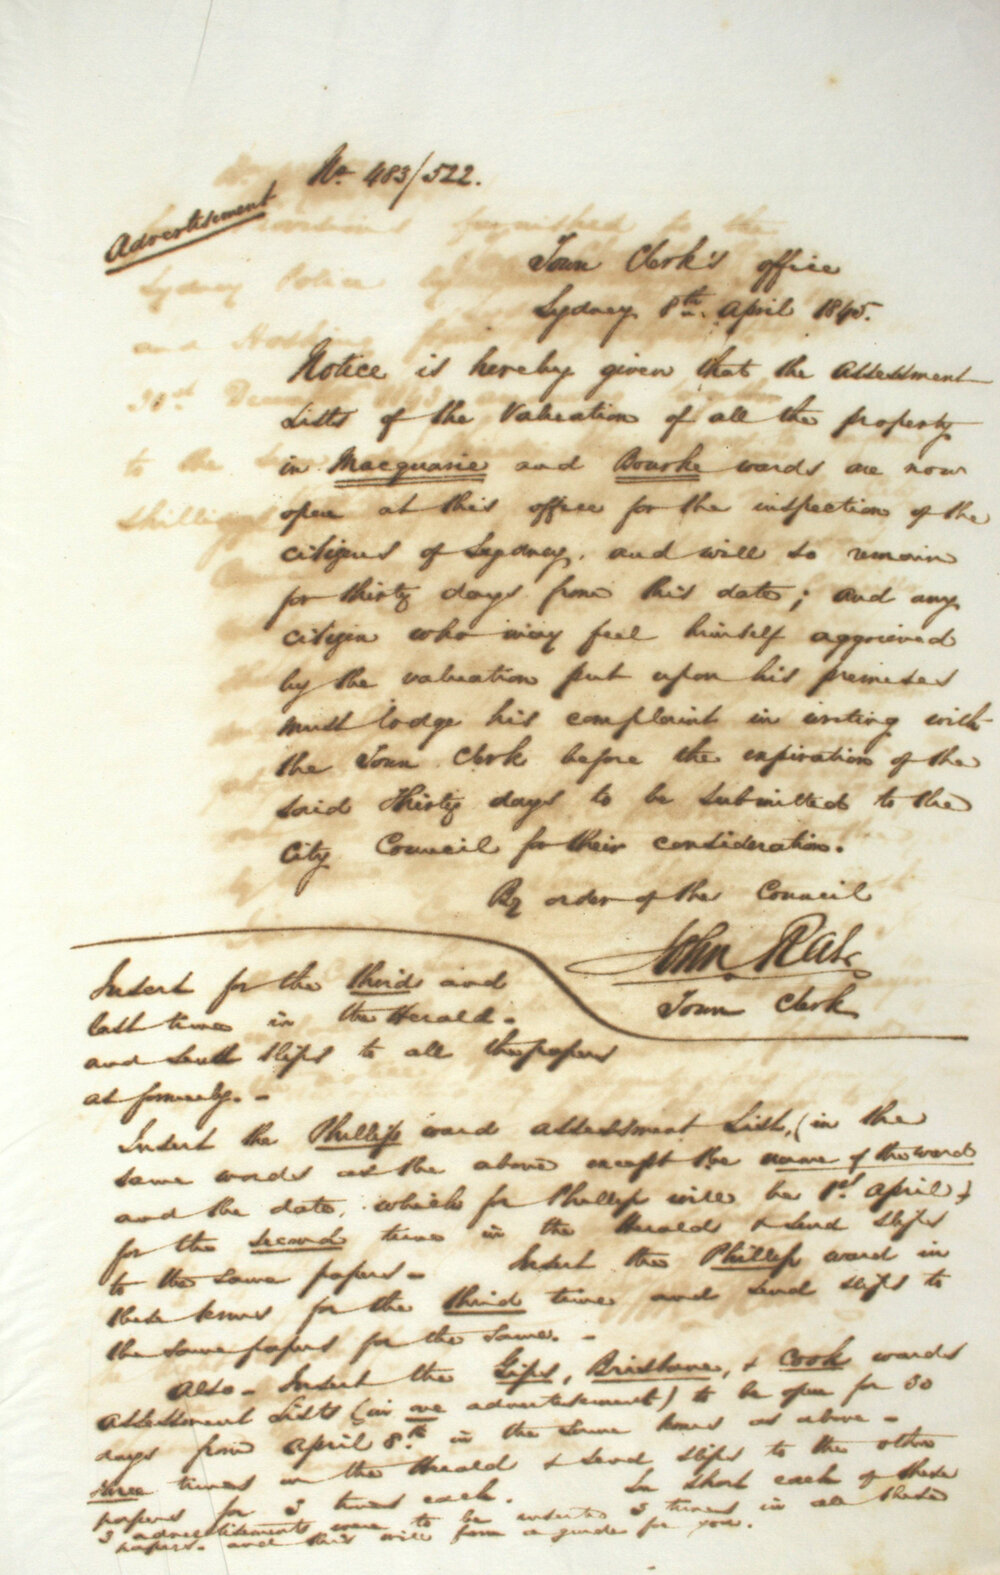 No. 483/522.
Advertisement
Town Clerk's office
Sydney 8th April 1845.
Notice is hereby given that the Assessment
Lists of the Valuation of all the property
in Macquarie and Bourke wards are now
open at this office for the inspection of the
citizens of Sydney, and will so remain
for thirty days from this date; and any
citizen who may feel himself aggrieved
by the valuation put upon his premises
must lodge his complaint in writing with
the Town Clerk before the expiration of the
said Thirty days to be submitted to the
City Council for their consideration.
By order of the Council
John Rae
Town Clerk
Insert for the third and
last time in the Herald -
and send slips to all the papers
as formerly. -
Insert the Phillip ward assessment List, (in the
same words as the above except the name of the ward
and the date, which for Phillip will be 1st April)
for the second time in the Herald & send slips
to the same papers - Insert the Phillip ward in
these terms for the third time and send slips to
the same papers for the same. -
Also - Insert the Gipps, Brisbane, & Cook wards
assessment Lists (in one advertisement) to be open for 30
days from April 8th in the same terms as above -
three times in the Herald & send slips to the other
papers for 3 times each. In short each of these
3 advertisements were to be inserted 3 times in all these
papers - and this will form a guide for you.
Sydney Police